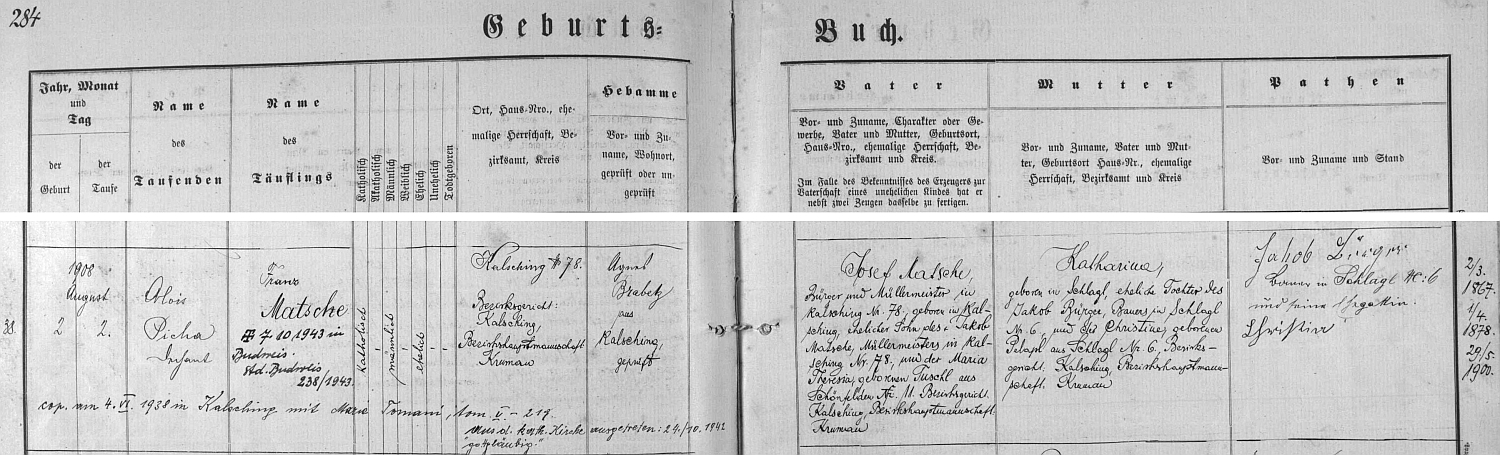 284
Geburts=
Buch.
Jahr, Monat
und
Tag
der
Geburt
der
Taufe
Name
des
Taufenden
Name
des
Täuflings
Katholisch
Akatholisch
Männlich
Weiblich
Ehelich
Unehelich
Todtgeboren
Ort, Haus-Nro., ehe-
malige Herrschaft, Be-
zirksamt, Kreis
Hebamme
Vor- und Zu-
name, Wohnort,
geprüft oder un-
geprüft
Vater
Vor- und Zuname, Charakter oder Ge-
werbe, Vater und Mutter, Geburtsort,
Haus-Nro., ehemalige Herrschaft, Be-
zirksamt und Kreis.
Im Falle des Bekenntnisses des Erzeugers zur
Vaterschaft eines unehelichen Kindes hat er
nebst zwei Zeugen dasselbe zu fertigen.
Mutter
Vor- und Zuname, Vater und Mut-
ter, Geburtsort Haus-Nr., ehemalige
Herrschaft, Bezirksamt und Kreis
Pathen
Vor- und Zuname und Stand
38.
1908
August
2
2.
Alois
Picha
Dechant
Franz
Matsche
7.10.1943 in
Budweis.
Std. Budweis
238/1943.
katholisch
männlich
ehelich
Kalsching № 78.
Bezirksgericht:
Kalsching,
Bezirkshauptmannschaft
Krumau
Agnes
Brabetz
aus
Kalsching,
geprüft
Josef Matsche,
Bürger und Müllermeister in
Kalsching Nr. 78, geboren in Kal-
sching, ehelicher Sohn des Jakob
Matsche, Müllermeisters in Kal-
sching Nr. 78, und der Maria
Theresia, geborenen Tuschl aus
Schönfelden Nr. 11. Bezirksgericht.
Kalsching, Bezirkshauptmannschaft
Krumau
Katharina,
geboren in Schlagl, eheliche Tochter des
Jakob Bürger, Bauers in Schlagl
Nr. 6, und der Christine, geborenen
aus Schlagl Nr. 6, Bezirks-
gericht. Kalsching, Bezirkshauptmann-
schaft. Krumau
Jakob Bürger
Bauer in Schlagl № 6
und seine Ehegattin
Christine
2/3.
1867.
1/4.
1878.
29/5.
1900.
cop. am 4. VI. 1938 in Kalsching mit Marie Tomani, tom. V - 219.
Aus d. kath. Kirche ausgetreten: 24./10. 1942
"gottgläubig"